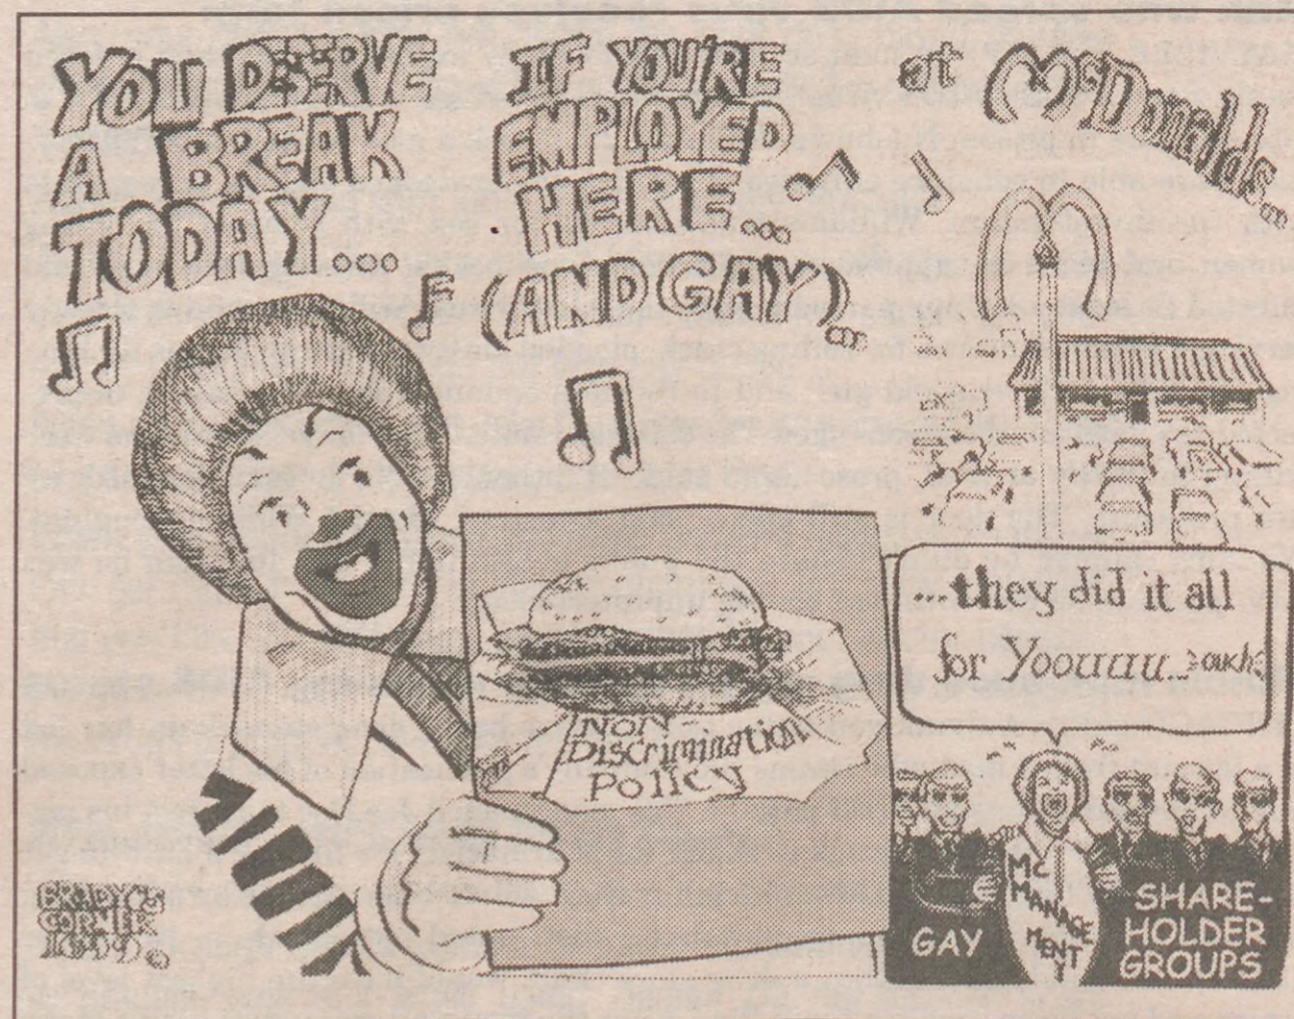 YOU DESERVE
A BREAK
TODAY...
IF YOU'RE
EMPLOYED
HERE...
(AND GAY)...
at McDonalds...
NON
DISCRIMINATION
POLICY
...they did it all
for Yoouuuu... ouch
MC
MANAGE
MENT
GAY
SHARE-
HOLDER
GROUPS
BRADY'S
CORNER
1999 ©